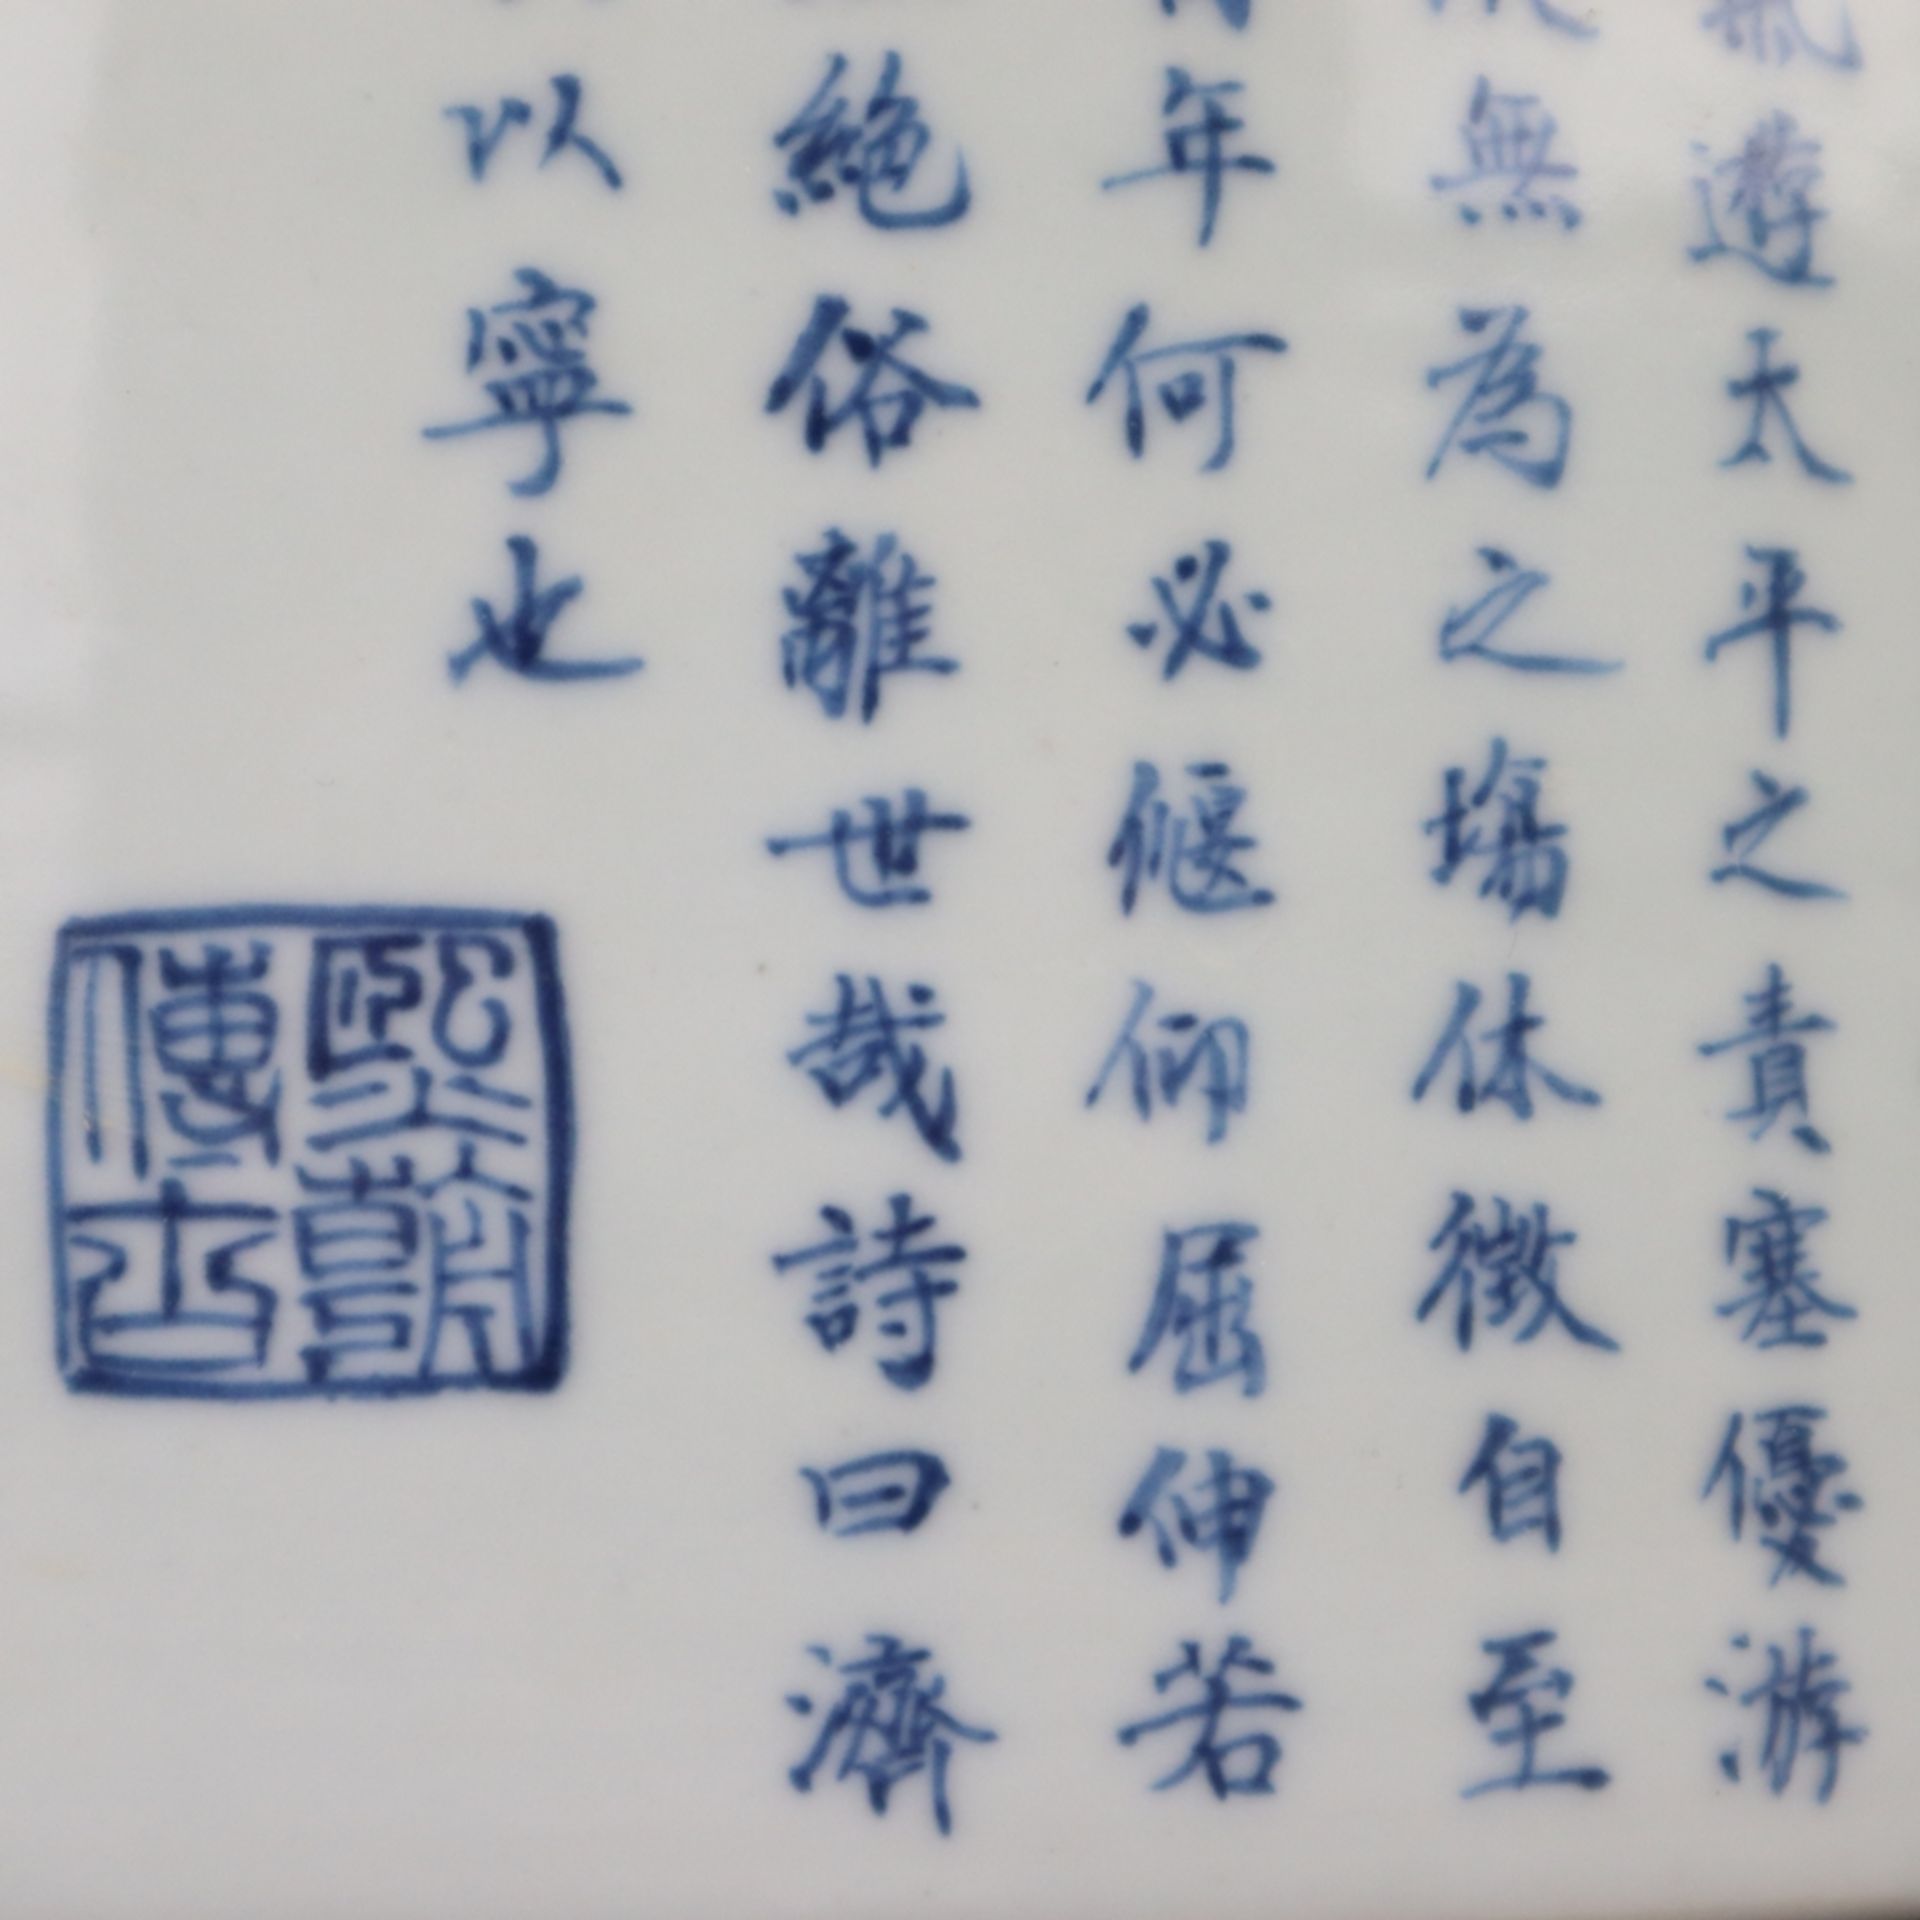 遊太平之責塞優游
無為之塲休徵自至
年何必偃仰屈伸若
絶俗離世哉詩曰濟
以寧也
熙朝
傳古